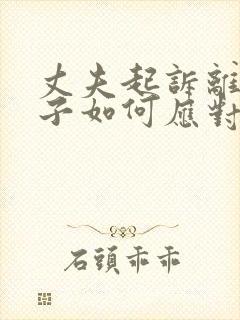 丈夫起訴離
子如何應對
石頭乖乖